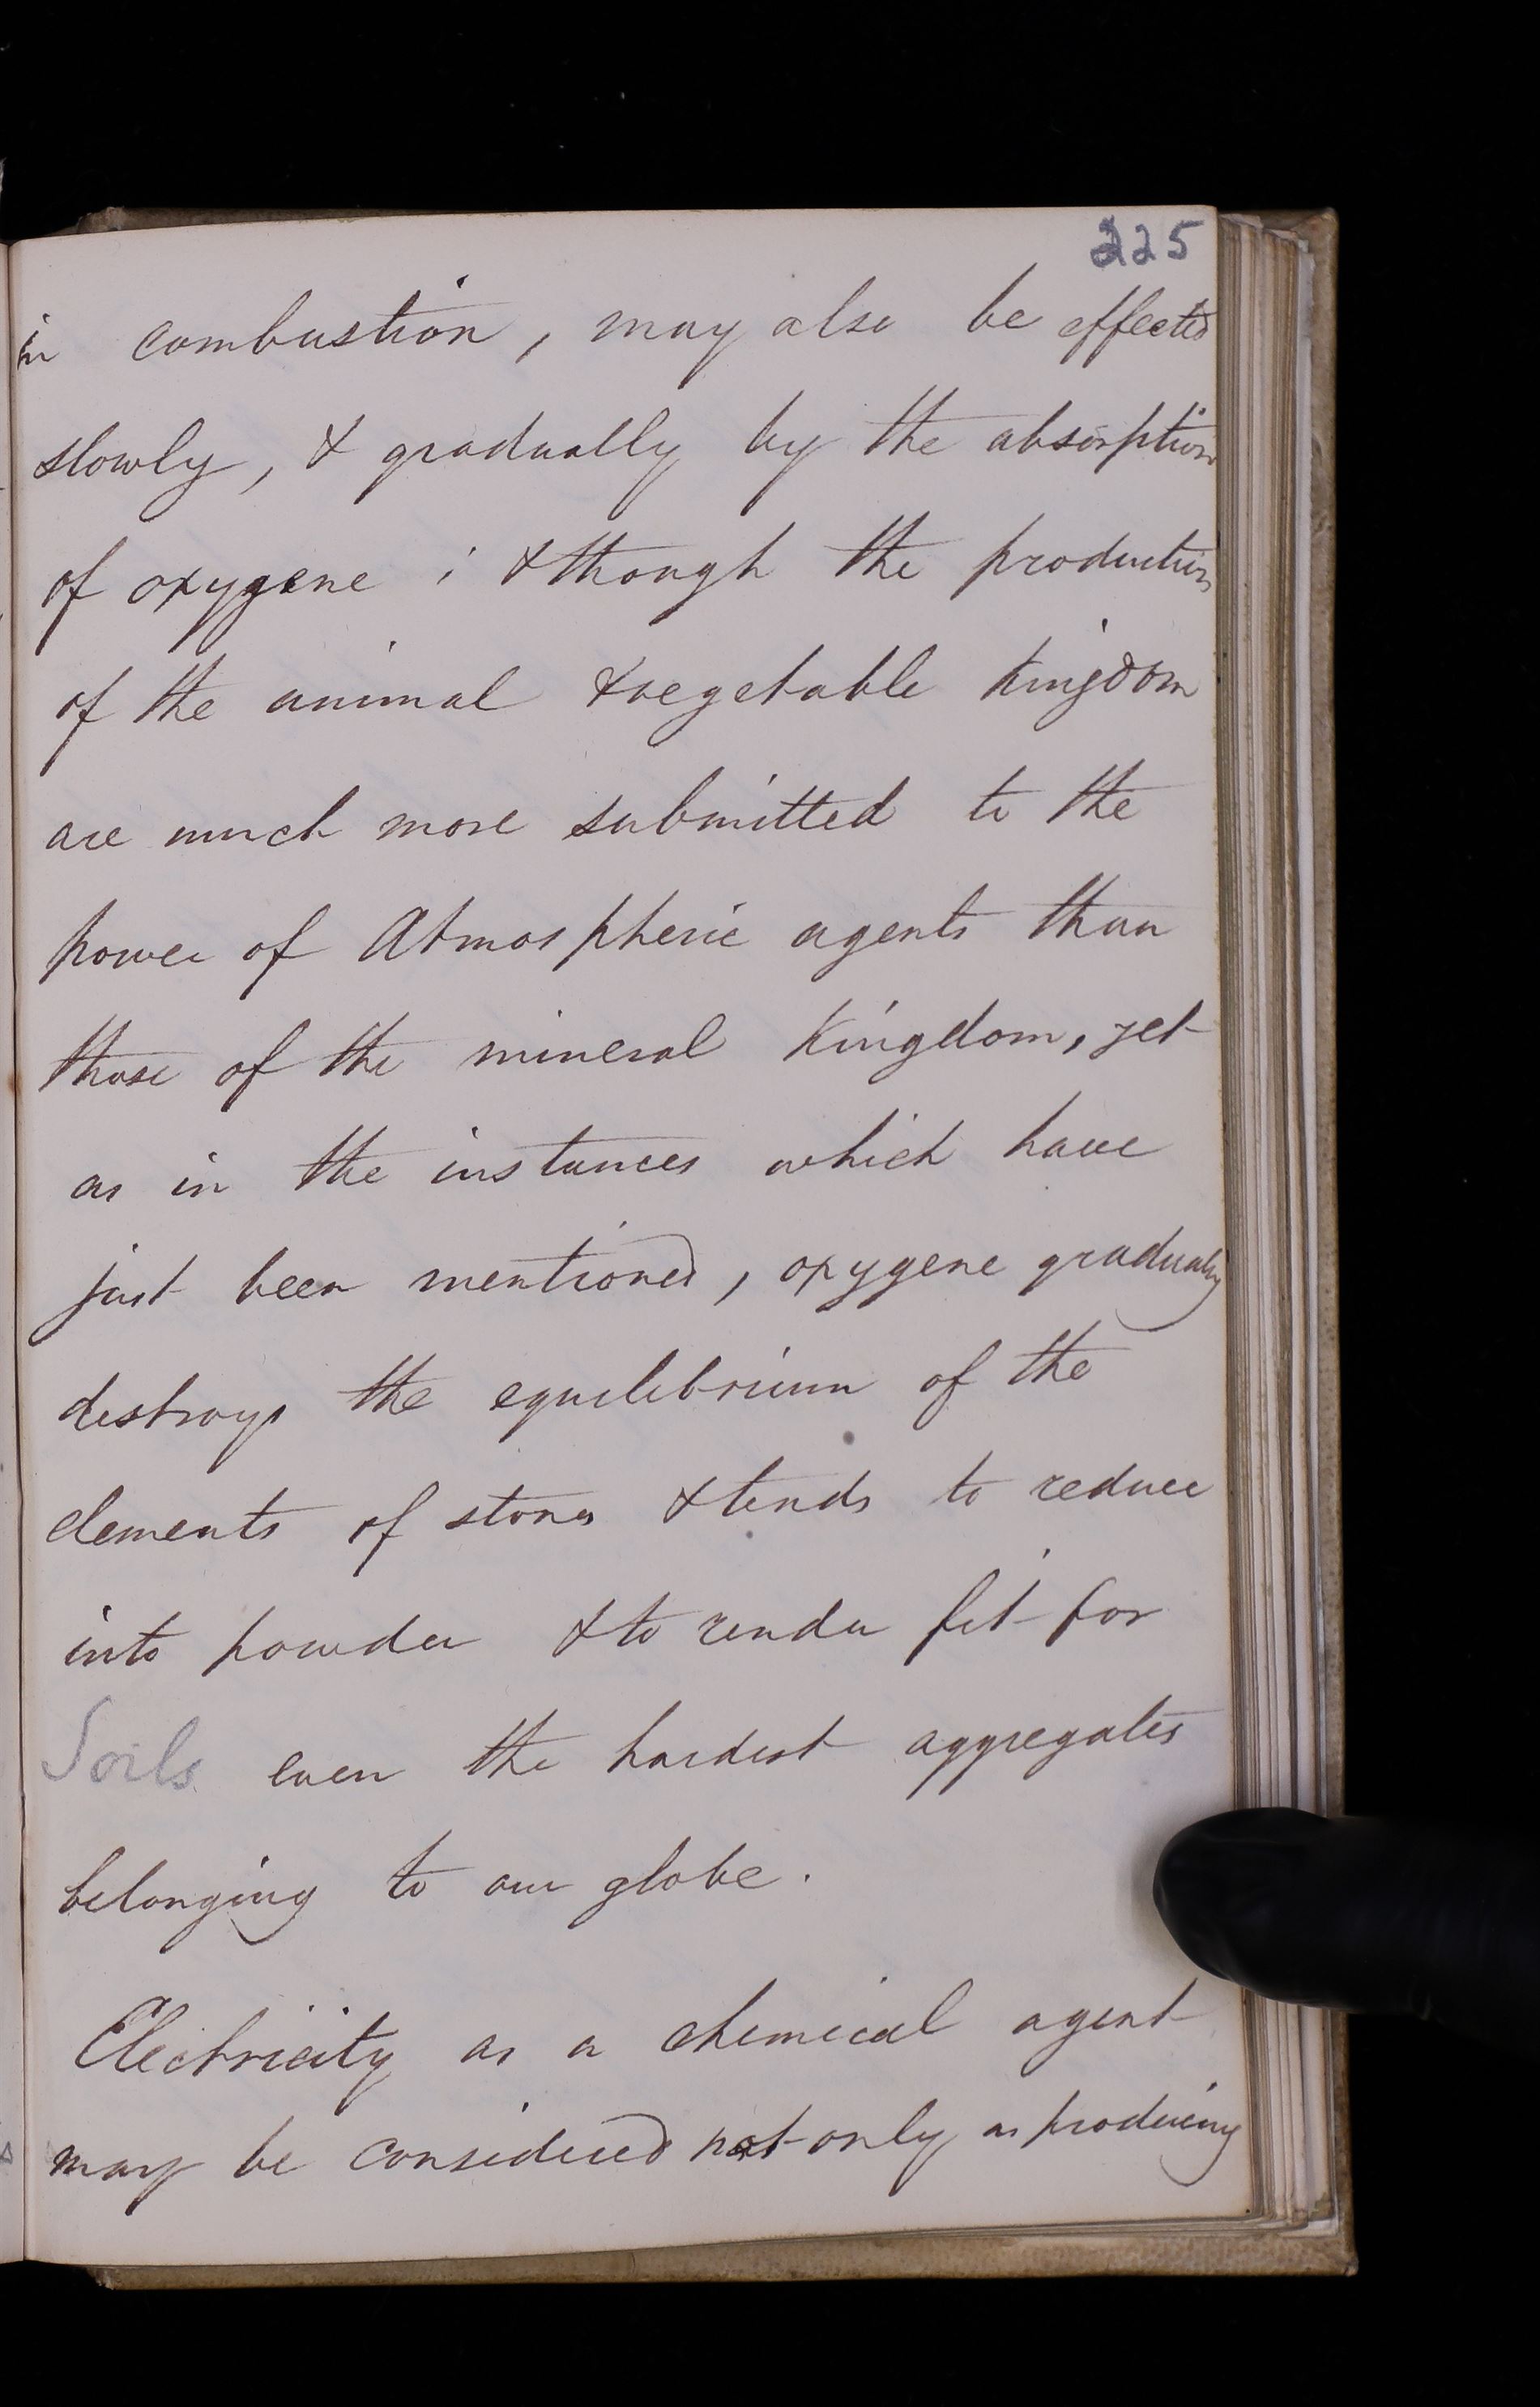 225
in combustion, may also be effected
slowly, & gradually by the absorption
of oxygene ; & though the production
of the animal & vegetable kingdom
are much more submitted to the
power of Atmospheric agents than
those of the mineral Kingdom, yet
as in the instances which have
just been mentioned, oxygene gradually
destroys the equilibrium of the
elements of stones & tends to reduce
into powder & to render fit for
Soils even the hardest aggregates
belonging to our globe.
Electricity as a chemical agent
may be considered not only as producing